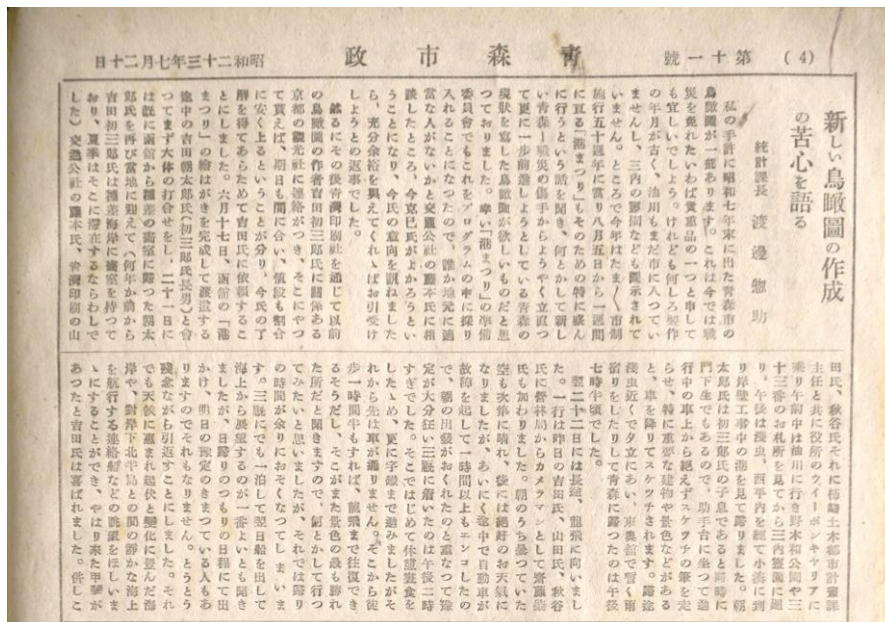 (4)
第十一號
靑森市政
昭和二十三年七月二十日
新しい鳥瞰圖の作成
の苦心を語る
統計課長 渡邊惣助
私の手許に昭和七年末に出た靑森市の
鳥瞰圖が一組あります。これは今では戰
災を免れたいわば貴重品の一つと申して
も宜しいでしょう。けれども何しろ製作
の年月が古く、油川もまだ市に入つてい
ませんし、三內の靈園なども圖示されて
いません。ところで今年はたま〱市制
施行五十週年に當り八月五日から一週間
に亘る「港まつり」もそのための特に盛ん
に行うという話を聞き、何とかして新し
い靑森―戰災の傷手からようやく立直つ
て更に一步前進しようとしている靑森の
現狀を寫した鳥瞰圖が欲しいものだと思
つておりました。幸い「港まつり」の準備
委員會でもこれをプログラムの中に採り
入れることになつたので、誰か地元に適
當な人がないかと交通公社の藤本氏に相
談したところ、今克巳氏がよかろうとい
うことになり、今氏の意向を訊ねました
ら、充分余裕を與えてくれゝばお引受け
しようとの返事でした。
然るにその後靑灣印刷社を通じて以前
の鳥瞰圖の作者吉田初三郎氏に關係ある
京都の觀光社に連絡がつき、そこにやつ
て貰えば、期日も間に合い、値段も割合
に安く上るということが分り、今氏の了
解を得てあらためて吉田氏に依賴するこ
とにしました。六月十七日、函館の「港
まつり」の繪はがきを完成して渡道する
途中の吉田朝太郎氏(初三郎氏長男)と會
つてまず大体の打合せをし、二十一日に
は旣に函館から種差の畵室に歸つた朝太
郎氏を再び當地に迎えて(何年か前から
吉田初三郎氏は種差海岸に畵室を持つて
おり、夏季はそこに滯在するならわしで
した)交通公社の藤本氏、靑灣印刷の山
田氏、秋谷氏それに柿崎土木都市計畵課
主任と共に役所のウイーポンキヤリアに
乘り午前中は油川に行き野木和公園や三
十三番のお札所を見てから三內靈園に廻
り、午後は淺虫、西平內を經て小湊に到
り岸壁工事中の港を見て歸りました。朝
太郎氏は初三郎氏の子息であると同時に
門下生でもあるので、助手台に坐つて進
行中の車上から絕えずスケツチの筆を走
らせ、特に重要な建物や景色などがある
と、車を降りてスケツチされます。歸途
淺虫近くで夕立にあい、東奧館で暫く雨
宿りをしたりして靑森に歸つたのは午後
七時半頃でした。
翌二十二日には長途、龍飛に向いまし
た。一行は昨日の吉田氏、山田氏、秋谷
氏に營林局からカメラマンとして齋藤
氏も加わりました。朝のうち曇つていた
空も次第に晴れ、後には絕好のお天氣に
なりましたが、あいにく途中で自動車が
故障を起して一時間以上もエンコしたの
で、朝の出發がおくれたのと重なつて豫
定が大分狂い三厩に着いたのは午後二時
すぎでした。そこではじめて休憩晝食を
したゝめ、更に宇鐵まで進みましたがそ
れから先は車が通りません。そこから徒
步一時間半もすれば、龍飛まで往復でき
るそうだし、そこがまた景色の最も勝れ
た所だと聞きますので、何とかして行つ
てみたいと思いましたが、それでは歸り
の時間が余りにおそくなつてしまいま
す。三厩にでも一泊して翌日船を出して
海上から展望するのが一番よいとも聞き
ましたが、日歸りのつもりの日程にて出
かけ、明日の豫定のきまつている人もあ
りますのでそれもなりません。とうとう
殘念ながら引返すことにしました。それ
でも天候に惠まれ起伏と變化に豐んだ海
岸や、對岸下北半島との間の靜かな海上
を航行する連絡船などの眺望をほしいま
ゝにすることができ、やはり來た甲斐が
あつたと吉田氏は喜ばれました。併しこ